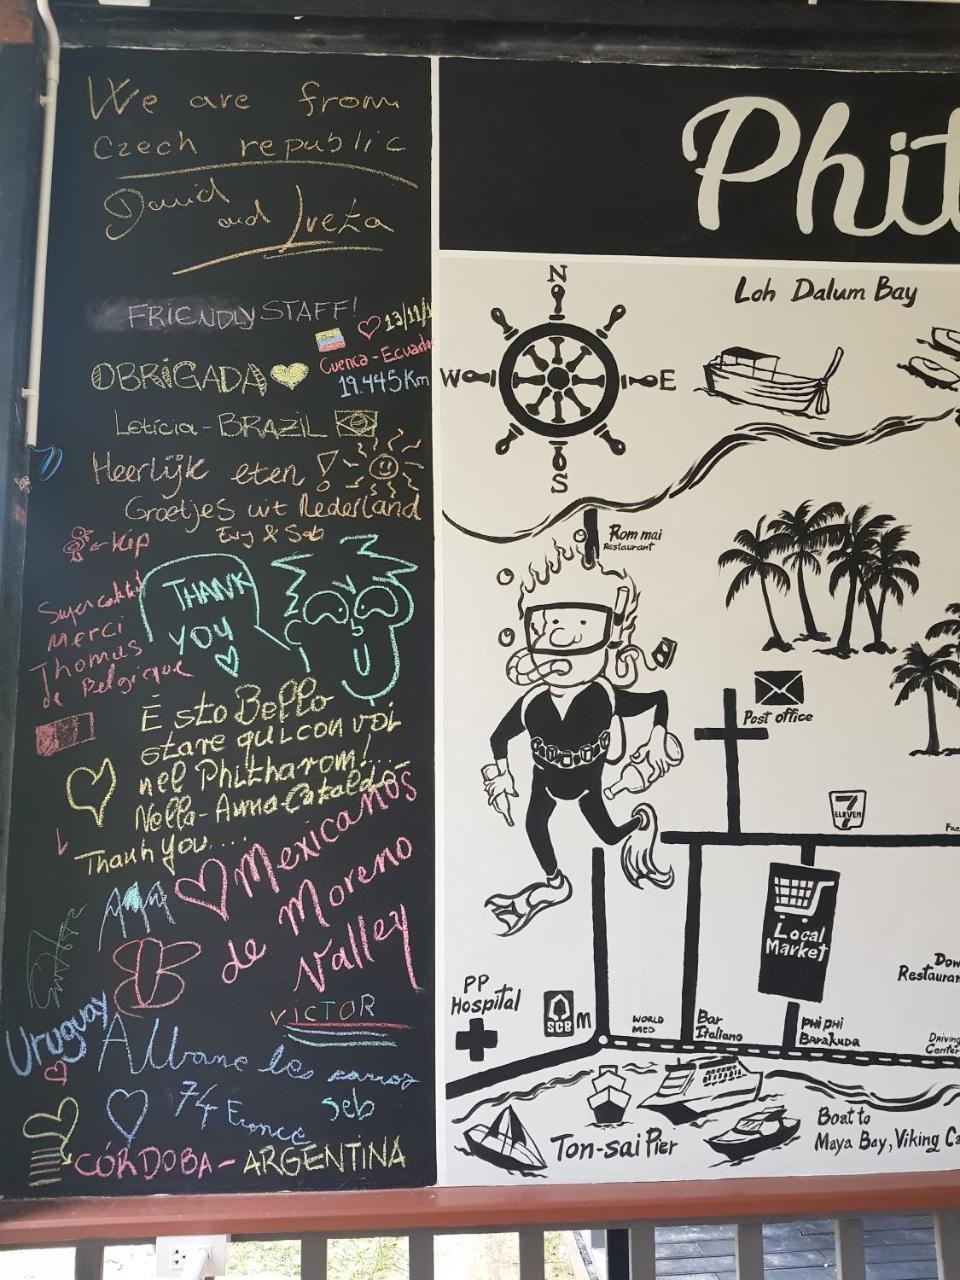 We are from
Czech republic
David
and Iveta
FRIENDLY STAFF!
13/11/1
Cuenca - Ecuador
19.445Km
OBRIGADA
Letícia - BRAZIL
Heerlijk eten!
Groetjes uit Nederland
Evy & Seb
kip
THANK
YOU
Merci
Thomas
de Belgique
È sto Bello
stare qui con voi
nel Phitharom!...
Nella - Anna - Cataldo
Thank you...
Mexicanos
de Moreno
Valley
VICTOR
Uruguay
Albane les
74 France
seb
CÓRDOBA - ARGENTINA
Phit
N
W
E
S
Loh Dalum Bay
Rom mai
Restaurant
Post office
7
ELEVEN
Local
Market
Dow
Restauran
PP
Hospital
SCB
M
WORLD
MED
Bar
Italiano
PHI PHI
Barakuda
Driving
Center
Ton-sai Pier
Boat to
Maya Bay, Viking Ca